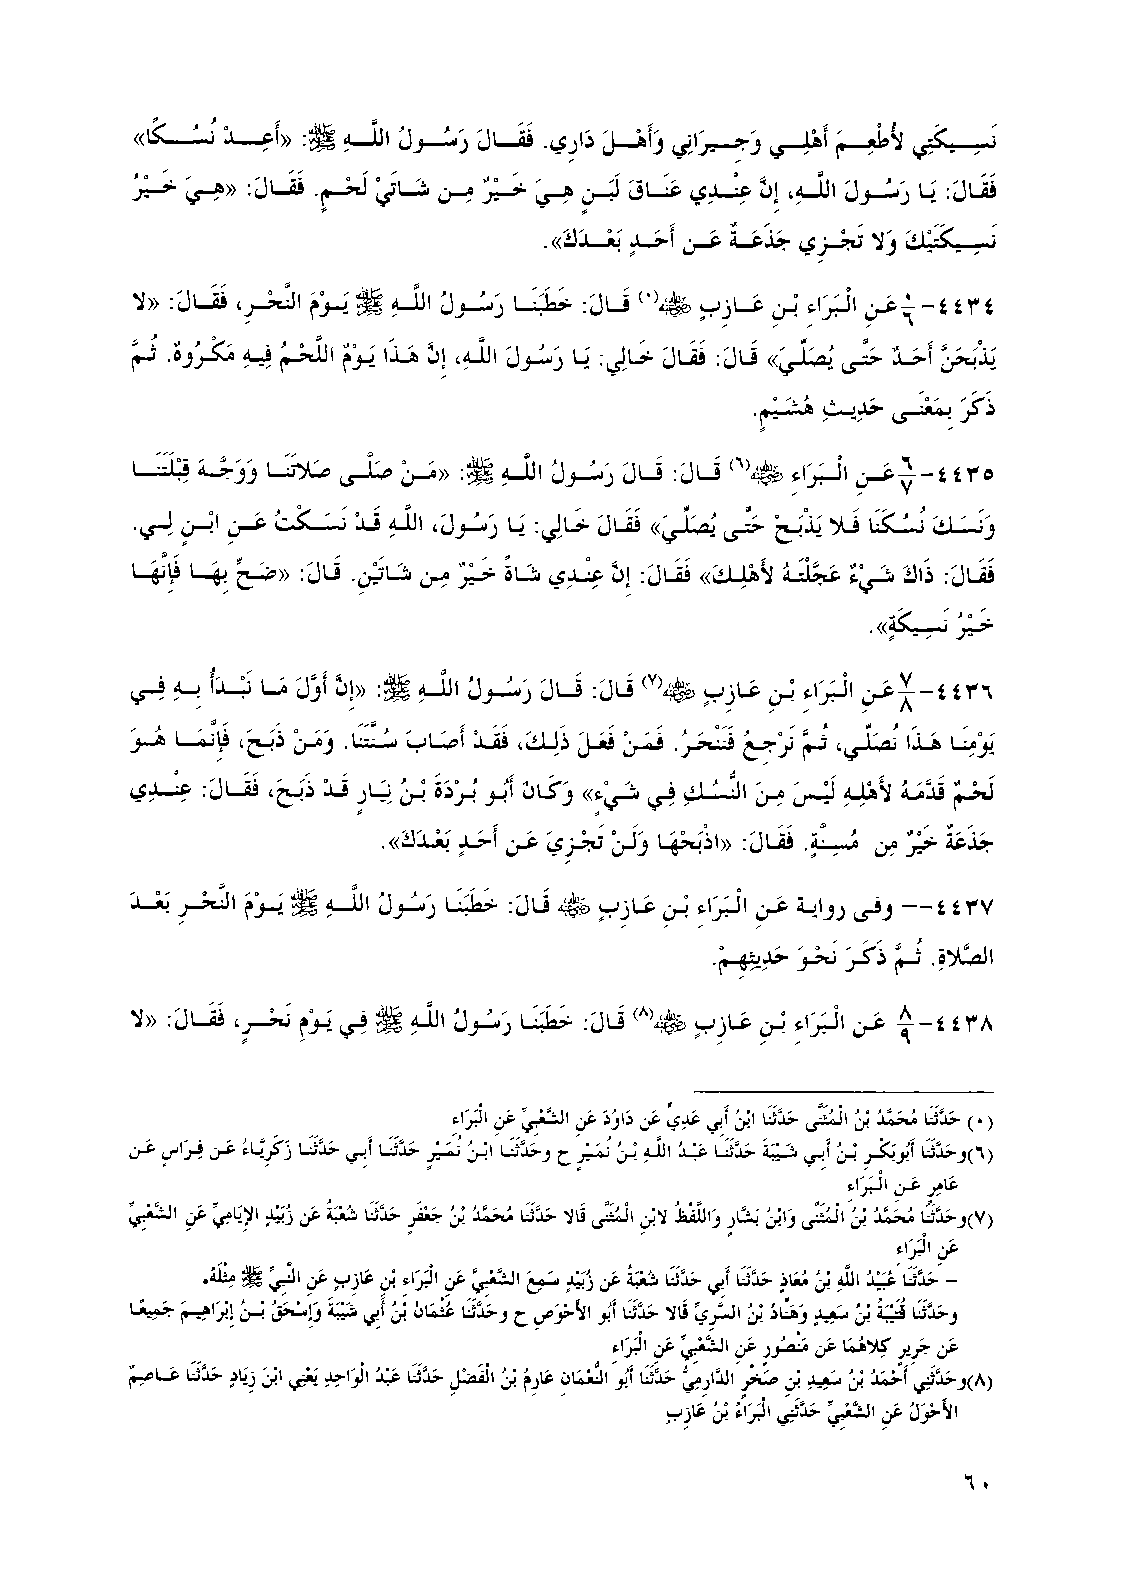 نَسِيكَتِي لأُطْعِمَ أَهْلِي وَجِيرَانِي وَأَهْلَ دَارِي. فَقَالَ رَسُولُ اللَّهِ ﷺ: «أَعِدْ نُسُكًا»
فَقَالَ: يَا رَسُولَ اللَّهِ، إِنَّ عِنْدِي عَنَاقَ لَبَنٍ هِيَ خَيْرٌ مِن شَاتَيْ لَحْمٍ. فَقَالَ: «هِيَ خَيْرُ
نَسِيكَتَيْكَ وَلا تَجْزِي جَذَعَةٌ عَن أَحَدٍ بَعْدَكَ».
٤٤٣٤- عَنِ الْبَرَاءِ بْنِ عَازِبٍ ﵁ قَالَ: خَطَبَنَا رَسُولُ اللَّهِ ﷺ يَوْمَ النَّحْرِ، فَقَالَ: «لا
يَذْبَحَنَّ أَحَدٌ حَتَّى يُصَلِّيَ» قَالَ: فَقَالَ خَالِي: يَا رَسُولَ اللَّهِ، إِنَّ هَذَا يَوْمٌ اللَّحْمُ فِيهِ مَكْرُوهٌ. ثُمَّ
ذَكَرَ بِمَعْنَى حَدِيثِ هُشَيْمٍ.
٤٤٣٥- ٦/٧ عَنِ الْبَرَاءِ ﵁(٦) قَالَ: قَالَ رَسُولُ اللَّهِ ﷺ: «مَنْ صَلَّى صَلاتَنَا وَوَجَّهَ قِبْلَتَنَا
وَنَسَكَ نُسُكَنَا فَلا يَذْبَحْ حَتَّى يُصَلِّيَ» فَقَالَ خَالِي: يَا رَسُولَ، اللَّهِ قَدْ نَسَكْتُ عَنِ ابْنٍ لِي.
فَقَالَ: ذَاكَ شَيْءٌ عَجَّلْتَهُ لأَهْلِكَ» فَقَالَ: إِنَّ عِنْدِي شَاةً خَيْرٌ مِن شَاتَيْنِ. قَالَ: «ضَحِّ بِهَا فَإِنَّهَا
خَيْرُ نَسِيكَةٍ».
٤٤٣٦- ٧/٨ عَنِ الْبَرَاءِ بْنِ عَازِبٍ ﵁(٧) قَالَ: قَالَ رَسُولُ اللَّهِ ﷺ: «إِنَّ أَوَّلَ مَا نَبْدَأُ بِهِ فِي
يَوْمِنَا هَذَا نُصَلِّي، ثُمَّ نَرْجِعُ فَنَنْحَرُ. فَمَنْ فَعَلَ ذَلِكَ، فَقَدْ أَصَابَ سُنَّتَنَا. وَمَنْ ذَبَحَ، فَإِنَّمَا هُوَ
لَحْمٌ قَدَّمَهُ لأَهْلِهِ لَيْسَ مِنَ النُّسُكِ فِي شَيْءٍ» وَكَانَ أَبُو بُرْدَةَ بْنُ نِيَارٍ قَدْ ذَبَحَ، فَقَالَ: عِنْدِي
جَذَعَةٌ خَيْرٌ مِن مُسِنَّةٍ. فَقَالَ: «اذْبَحْهَا وَلَنْ تَجْزِيَ عَن أَحَدٍ بَعْدَكَ».
٤٤٣٧-- وفى رواية عَنِ الْبَرَاءِ بْنِ عَازِبٍ ﵁ قَالَ: خَطَبَنَا رَسُولُ اللَّهِ ﷺ يَوْمَ النَّحْرِ بَعْدَ
الصَّلاةِ. ثُمَّ ذَكَرَ نَحْوَ حَدِيثِهِمْ.
٤٤٣٨- ٨/٩ عَنِ الْبَرَاءِ بْنِ عَازِبٍ ﵁(٨) قَالَ: خَطَبَنَا رَسُولُ اللَّهِ ﷺ فِي يَوْمِ نَحْرٍ، فَقَالَ: «لا
حَدَّثَنَا مُحَمَّدُ بْنُ الْمُثَنَّى حَدَّثَنَا ابْنُ أَبِي عَدِيٍّ عَن دَاوُدَ عَنِ الشَّعْبِيِّ عَنِ الْبَرَاءِ
(٦)وحَدَّثَنَا أَبُوبَكْرِ بْنُ أَبِي شَيْبَةَ حَدَّثَنَا عَبْدُ اللَّهِ بْنُ نُمَيْرٍ ح وحَدَّثَنَا ابْنُ نُمَيْرٍ حَدَّثَنَا أَبِي حَدَّثَنَا زَكَرِيَّاءُ عَن فِرَاسٍ عَن
عَامِرٍ عَنِ الْبَرَاءِ
(٧)وحَدَّثَنَا مُحَمَّدُ بْنُ الْمُثَنَّى وَابْنُ بَشَّارٍ وَاللَّفْظُ لابْنِ الْمُثَنَّى قَالا حَدَّثَنَا مُحَمَّدُ بْنُ جَعْفَرٍ حَدَّثَنَا شُعْبَةُ عَن زُبَيْدٍ الإِيَامِيِّ عَنِ الشَّعْبِيِّ
عَنِ الْبَرَاءِ
- حَدَّثَنَا عُبَيْدُ اللَّهِ بْنُ مُعَاذٍ حَدَّثَنَا أَبِي حَدَّثَنَا شُعْبَةُ عَن زُبَيْدٍ سَمِعَ الشَّعْبِيَّ عَنِ الْبَرَاءِ بْنِ عَازِبٍ عَنِ النَّبِيِّ ﷺ مِثْلَهُ.
وحَدَّثَنَا قُتَيْبَةُ بْنُ سَعِيدٍ وَهَنَّادُ بْنُ السَّرِيِّ قَالا حَدَّثَنَا أَبُو الأَحْوَصِ ح وحَدَّثَنَا عُثْمَانُ بْنُ أَبِي شَيْبَةَ وَإِسْحَقُ بْنُ إِبْرَاهِيمَ جَمِيعًا
عَن جَرِيرٍ كِلاهُمَا عَن مَنْصُورٍ عَنِ الشَّعْبِيِّ عَنِ الْبَرَاءِ
(٨)وحَدَّثَنِي أَحْمَدُ بْنُ سَعِيدِ بْنِ صَخْرٍ الدَّارِمِيُّ حَدَّثَنَا أَبُو النُّعْمَانِ عَارِمُ بْنُ الْفَضْلِ حَدَّثَنَا عَبْدُ الْوَاحِدِ يَعْنِي ابْنَ زِيَادٍ حَدَّثَنَا عَاصِمٌ
الأَحْوَلُ عَنِ الشَّعْبِيِّ حَدَّثَنِي الْبَرَاءُ بْنُ عَازِبٍ
٦٠